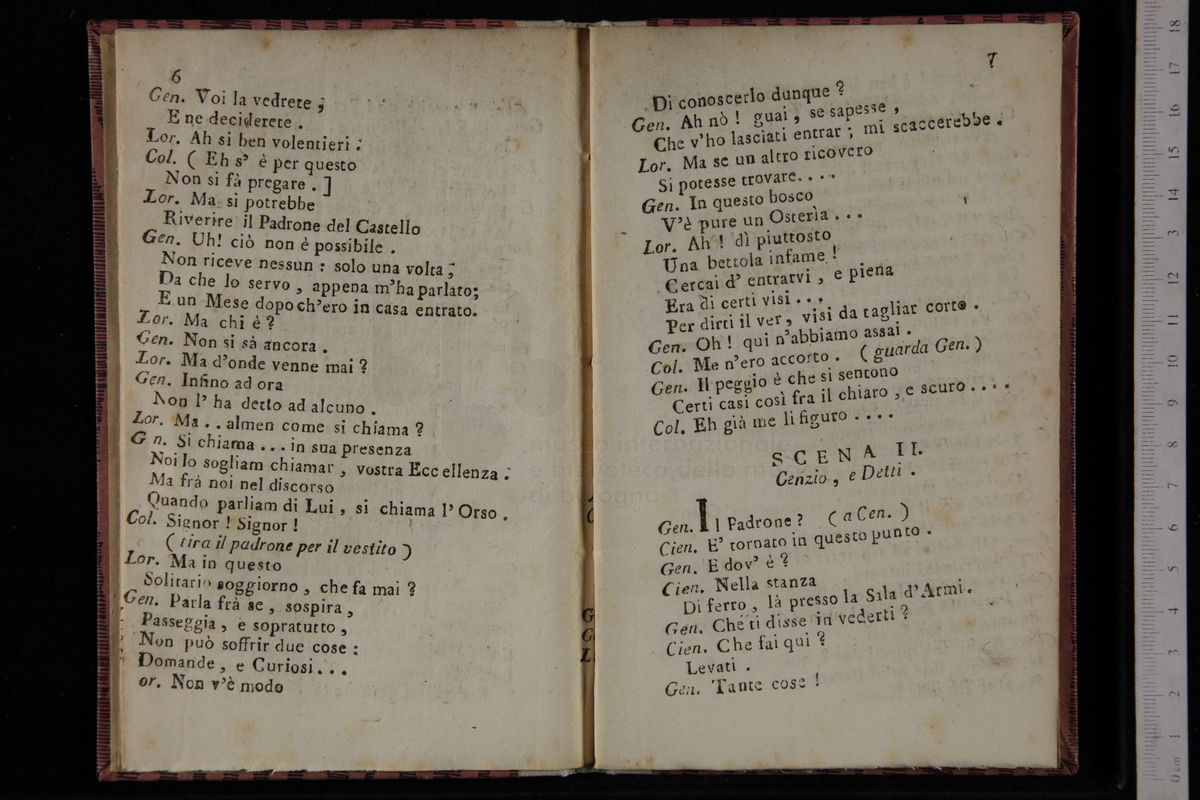 6
Gen. Voi la vedrete ;
E ne deciderete .
Lor. Ah si ben volentieri :
Col. ( Eh s' è per questo
Non si fà pregare . ]
Lor. Ma si potrebbe
Riverire il Padrone del Castello
Gen. Uh! ciò non è possibile .
Non riceve nessun : solo una volta ;
Da che lo servo , appena m'ha parlato;
E un Mese dopo ch'ero in casa entrato.
Lor. Ma chi è ?
Gen. Non si sà ancora .
Lor. Ma d'onde venne mai ?
Gen. Infino ad ora
Non l' ha detto ad alcuno .
Lor. Ma . . almen come si chiama ?
G n. Si chiama . . . in sua presenza
Noi lo sogliam chiamar , vostra Eccellenza :
Ma frà noi nel discorso
Quando parliam di Lui , si chiama l' Orso .
Col. Signor ! Signor !
( tira il padrone per il vestito )
Lor. Ma in questo
Solitario soggiorno , che fa mai ?
Gen. Parla frà se , sospira ,
Passeggia , e sopratutto ,
Non può soffrir due cose :
Domande , e Curiosi . . .
or. Non v'è modo
7
Di conoscerlo dunque ?
Gen. Ah nò ! guai , se sapesse ,
Che v'ho lasciati entrar ; mi scaccerebbe .
Lor. Ma se un altro ricovero
Si potesse trovare. . . .
Gen. In questo bosco
V'è pure un Osterìa . . .
Lor. Ah ! dì piuttosto
Una bettola infame !
Cercai d' entrarvi , e piena
Era di certi visi . . .
Per dirti il ver , visi da tagliar corto .
Gen. Oh ! qui n'abbiamo assai .
Col. Me n'ero accorto . ( guarda Gen. )
Gen. Il peggio è che si sentono
Certi casi così fra il chiaro , e scuro . . . .
Col. Eh già me li figuro . . . .
SCENA II.
Cenzio , e Detti .
Gen. Il Padrone ? ( a Cen. )
Cien. E' tornato in questo punto .
Gen. E dov' è ?
Cien. Nella stanza
Di ferro , là presso la Sala d'Armi.
Gen. Che ti disse in vederti ?
Cien. Che fai qui ?
Levati .
Gen. Tante cose !
museo internazionale
e biblioteca della musica
di bologna